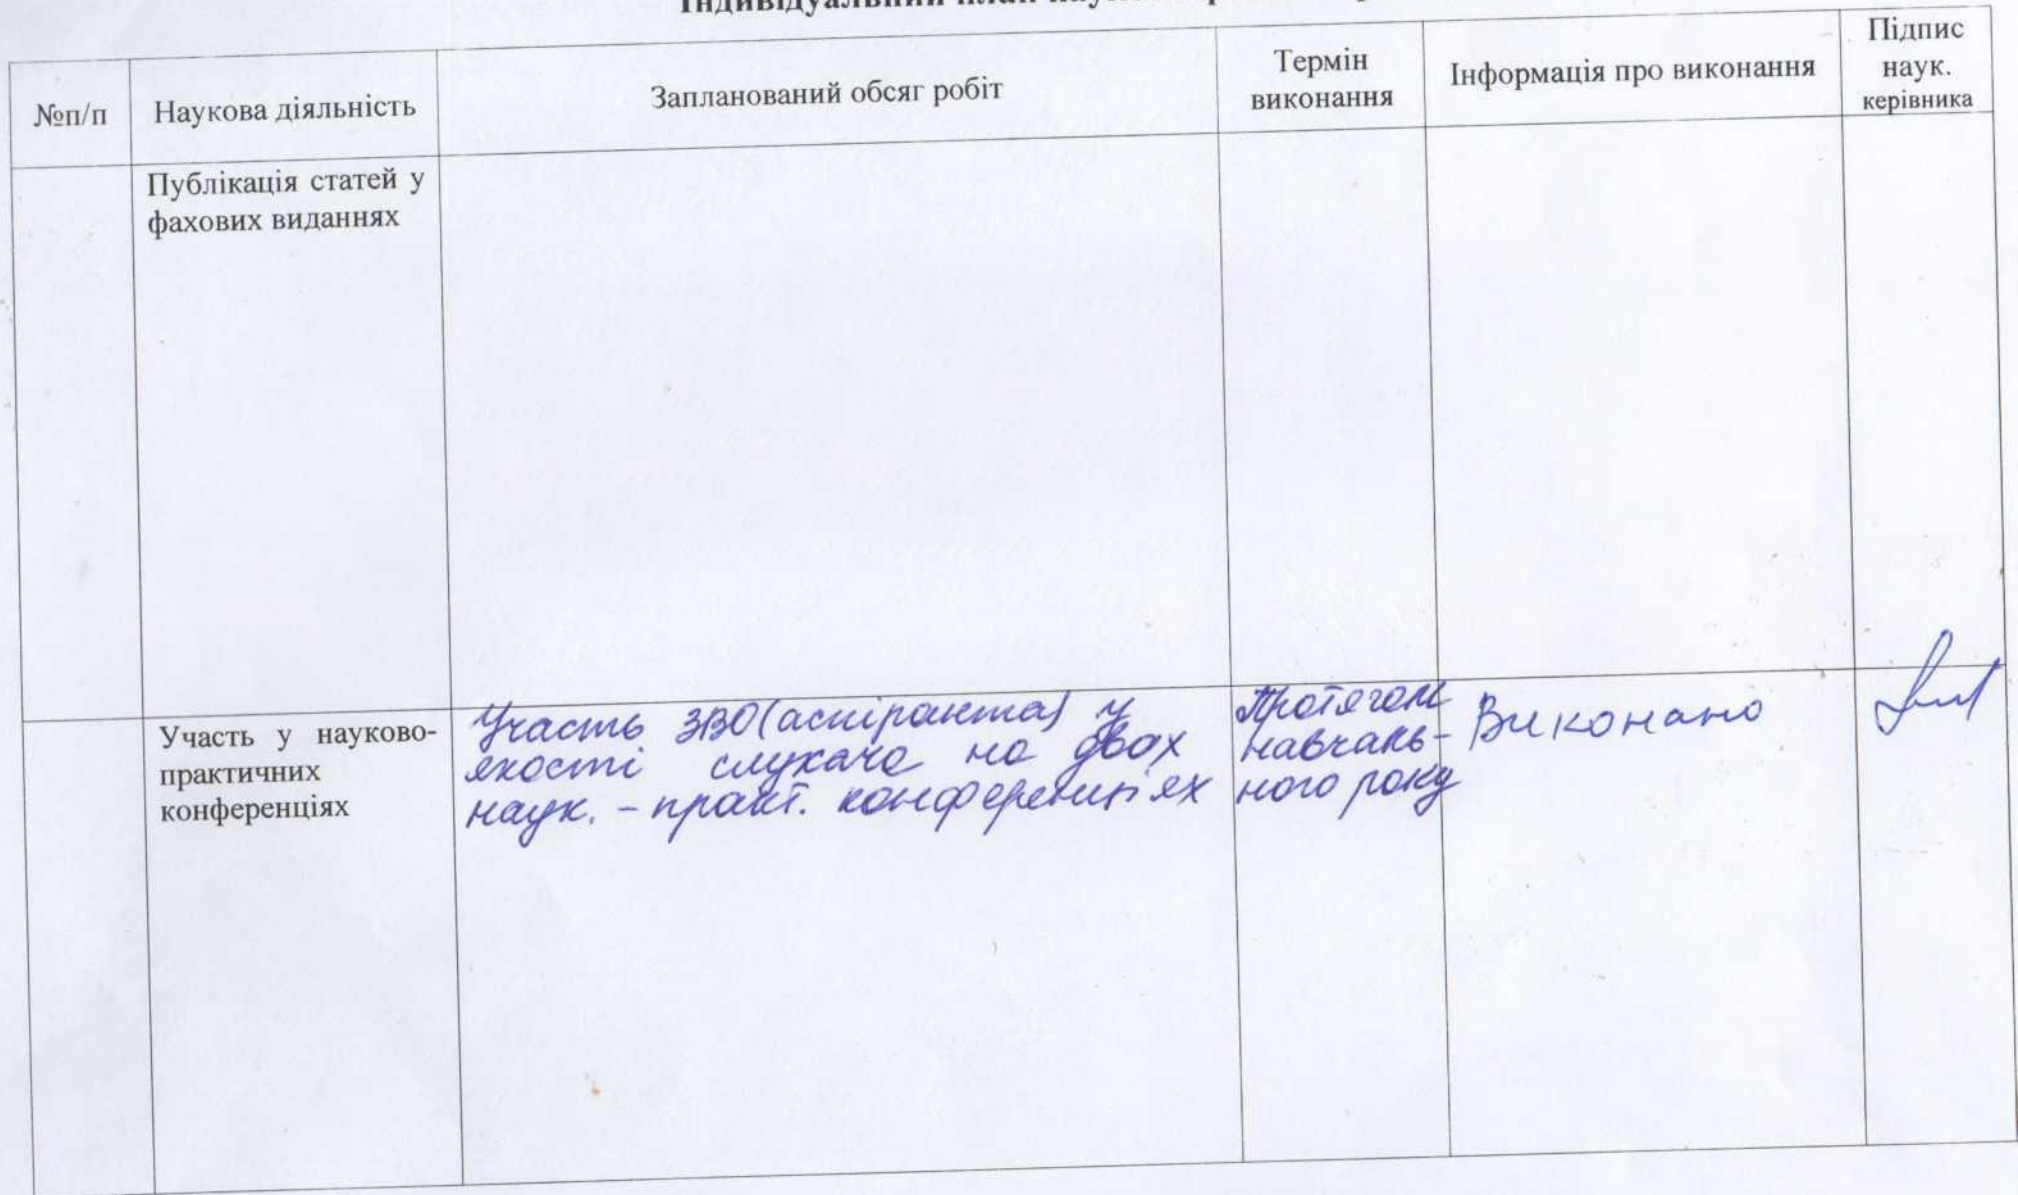 Індивідуальний план
№п/п
Наукова діяльність
Запланований обсяг робіт
Термін
виконання
Інформація про виконання
Підпис
наук.
керівника
Публікація статей у
фахових виданнях
Участь у науково-
практичних
конференціях
Участь ЗВО (аспіранта) у
якості слухача на двох
наук. - практ. конференціях
Протягом
навчаль-
ного року
Виконано